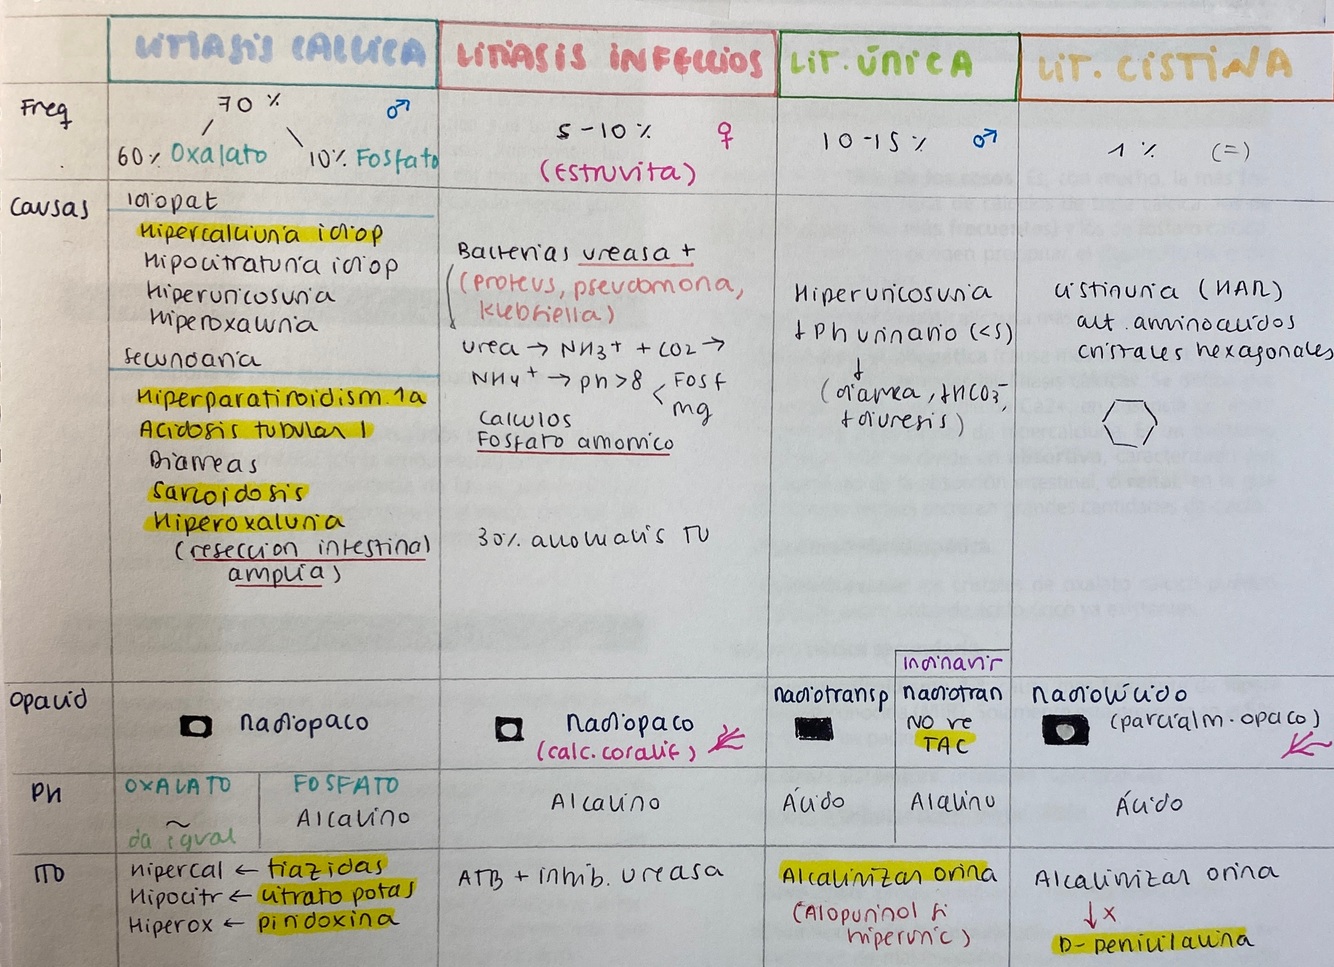 LITIASIS CALCICA
LITIASIS INFECCIOS
LIT. ÚRICA
LIT. CISTINA
Freq
70 % ♂
60% Oxalato 10% Fosfato
5-10 % ♀
(Estruvita)
10-15 % ♂
1 % (=)
Causas
Idiopat
Hipercalciuria idiop
Hipocitraturia idiop
Hiperuricosuria
Hiperoxaluria
Secundaria
Hiperparatiroidism. 1a
Acidosis tubular I
Diarreas
Sarcoidosis
Hiperoxaluria
(reseccion intestinal
amplias)
Bacterias ureasa +
(proteus, pseudomona,
klebsiella)
urea → NH3+ + CO2 →
NH4+ → ph >8 < Fosf
mg
Calculos
Fosfato amonico
30% anomalis TU
Hiperuricosuria
↓ Ph urinario (<5)
↓
(diarrea, ↓HCO3-,
↓diuresis)
cistinuria (HAR)
alt. aminoacidos
cristales hexagonales
Opacid
radiopaco
radiopaco
(calc. coralif)
radiotransp
Indinavir
radiotran
NO ve
TAC
radiolúcido
(parcialm. opaco)
Ph
OXALATO
da igual
FOSFATO
Alcalino
Alcalino
Ácido
Alalino
Ácido
TTO
Hipercal ← tiazidas
Hipocitr ← citrato potas
Hiperox ← piridoxina
ATB + inhib. ureasa
Alcalinizar orina
(Alopurinol si
hiperuric)
Alcalinizar orina
↓ x
D-penicilamina